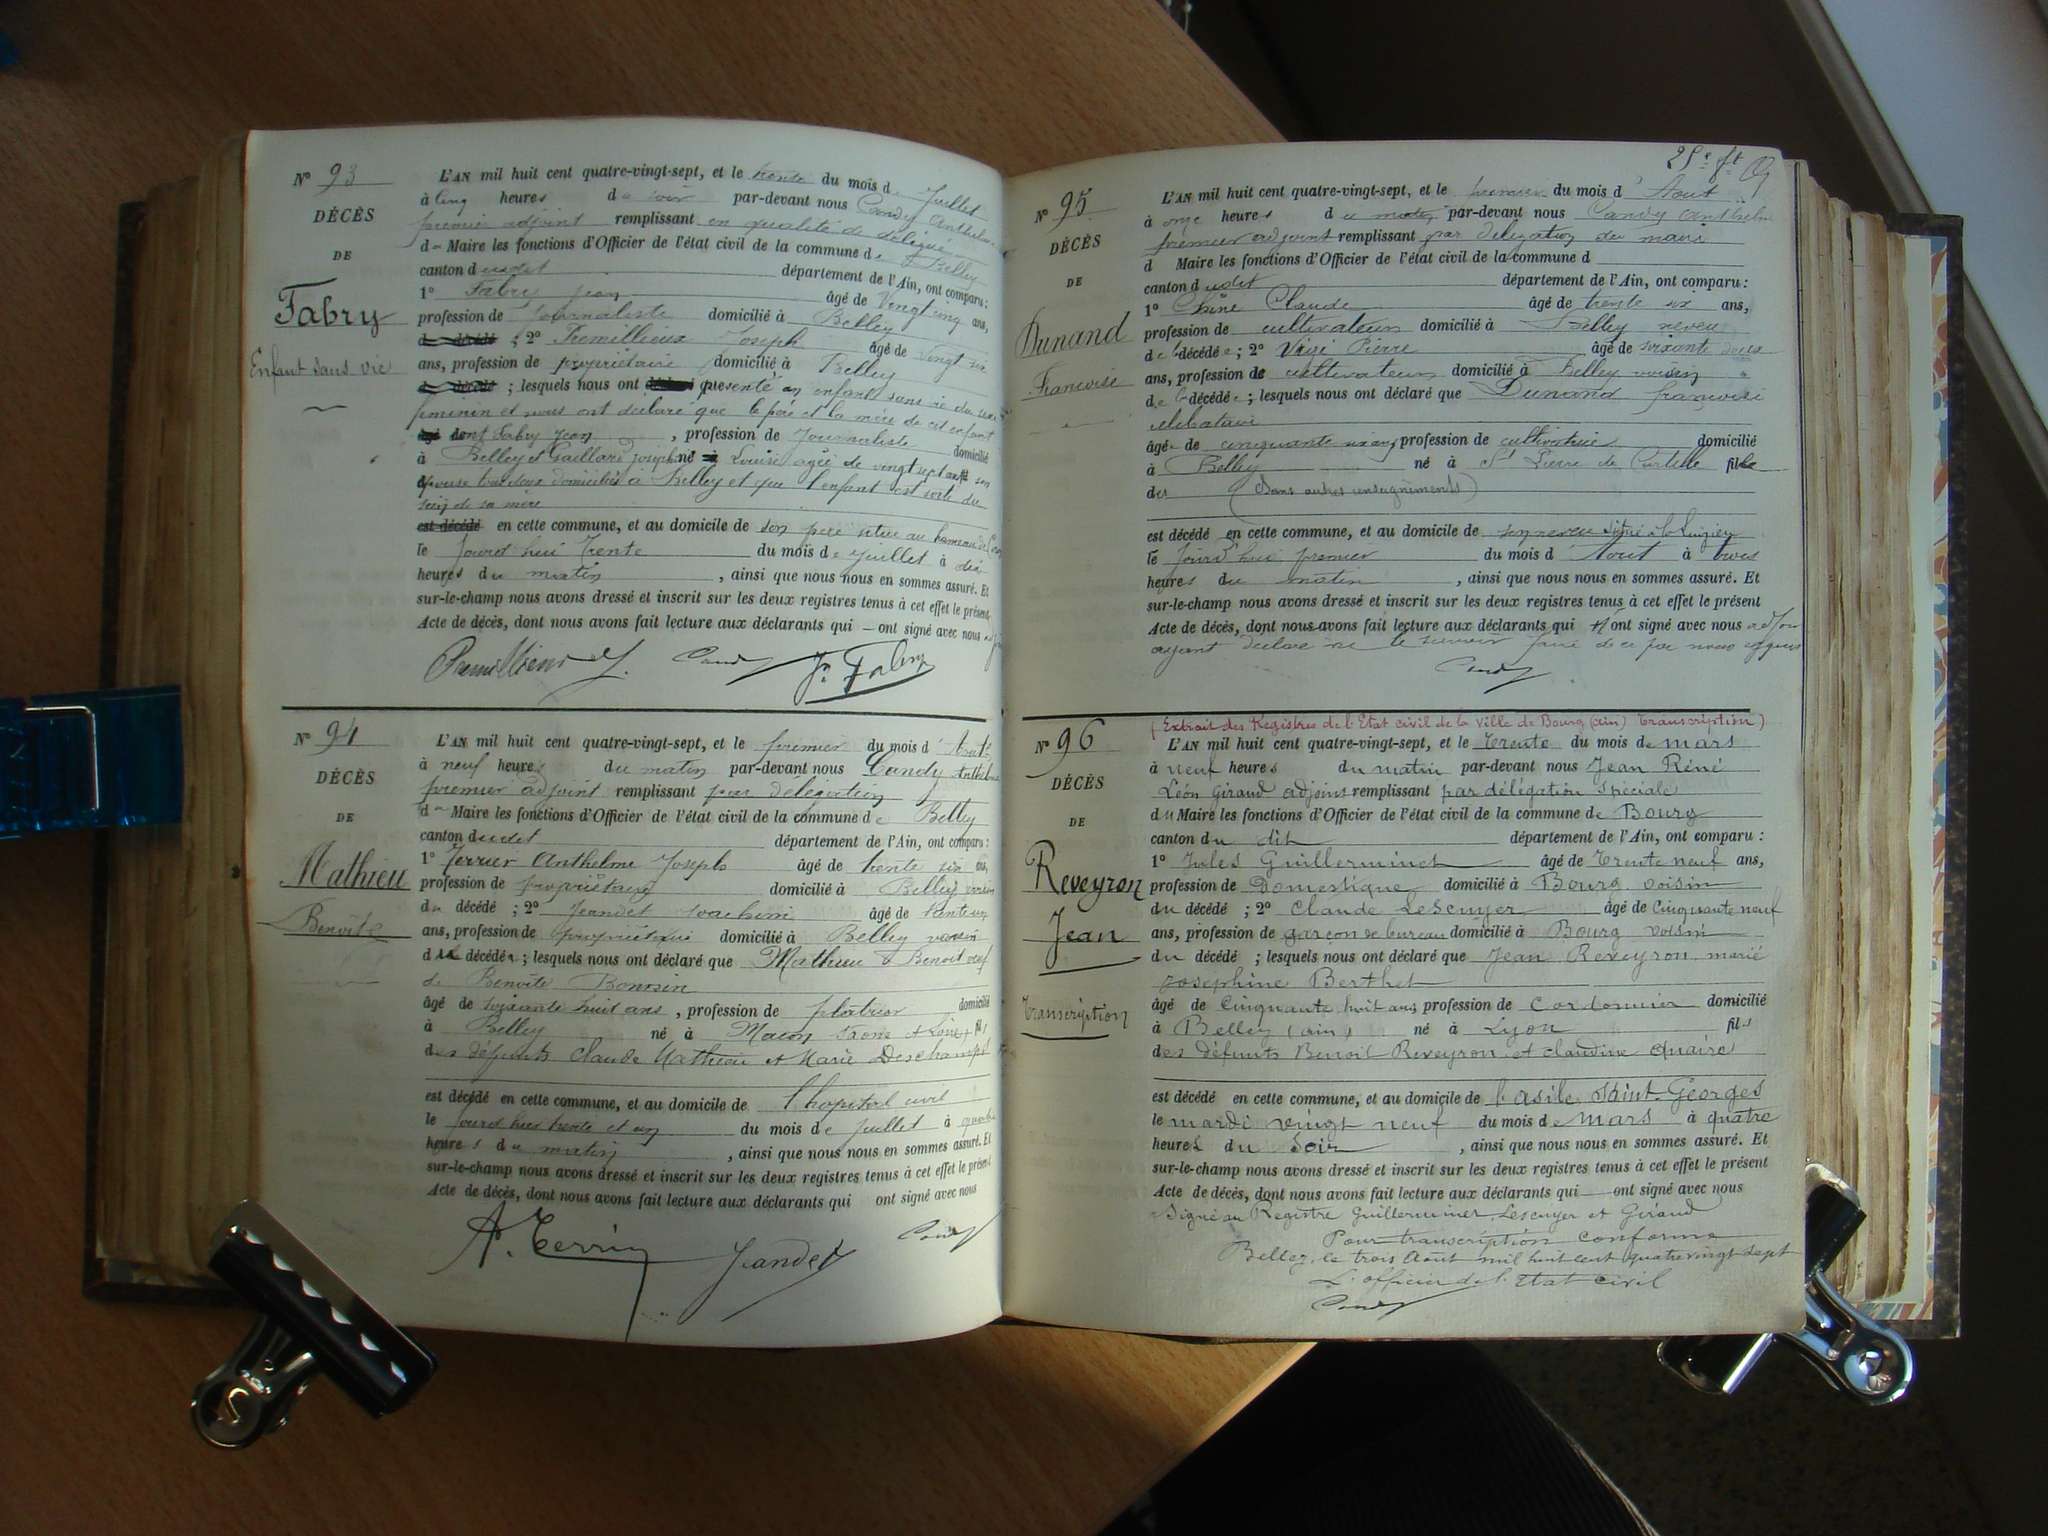 N° 93
DÉCÈS
DE
Fabry
Enfant sans vie
L'AN mil huit cent quatre-vingt-sept, et le trente du mois de Juillet
à cinq heures du soir par-devant nous Candy Anthelme
premier adjoint remplissant en qualité de délégué
d Maire les fonctions d'Officier de l'état civil de la commune de Belley
canton dudit département de l'Ain, ont comparu :
1° Fabry Jean âgé de Vingt cinq ans,
profession de Journaliste domicilié à Belley
; 2° Joseph âgé de vingt six
ans, profession de propriétaire domicilié à Belley
; lesquels nous ont présenté un enfant sans vie du sexe
féminin et nous ont déclaré que le père et la mère de cet enfant
sont Fabry Jean, profession de Journaliste domicilié
à Belley et Gaillard Josephne Louise agée de vingt sept ans son
épouse tous deux domiciliés à Belley et que l'enfant est sorti du
sein de sa mère
est décédé en cette commune, et au domicile de son père situé au hameau de
le Jourd'hui Trente du mois de Juillet à dix
heures du matin, ainsi que nous nous en sommes assuré. Et
sur-le-champ nous avons dressé et inscrit sur les deux registres tenus à cet effet le présent
Acte de décès, dont nous avons fait lecture aux déclarants qui ont signé avec nous
Candy Jn Fabry
N° 94
DÉCÈS
DE
Mathieu
Benoit
L'AN mil huit cent quatre-vingt-sept, et le premier du mois d'Août
à neuf heures du matin par-devant nous Candy Anthelme
premier adjoint remplissant par délégation
d Maire les fonctions d'Officier de l'état civil de la commune de Belley
canton dudit département de l'Ain, ont comparu :
1° Terrier Anthelme Joseph âgé de trente six ans,
profession de propriétaire domicilié à Belley voisin
du décédé ; 2° Jeandet Joachim âgé de
ans, profession de propriétaire domicilié à Belley voisin
du décédé ; lesquels nous ont déclaré que Mathieu Benoit veuf
de Benoîte
âgé de soixante huit ans, profession de plâtrier domicilié
à Belley né à Macon Saone et Loire fils
des défunts Claude Mathieu et Marie Deschamps
est décédé en cette commune, et au domicile de l'hopital civil
le Jourd'hier trente et un du mois de Juillet à quatre
heures du matin, ainsi que nous nous en sommes assuré. Et
sur-le-champ nous avons dressé et inscrit sur les deux registres tenus à cet effet le présent
Acte de décès, dont nous avons fait lecture aux déclarants qui ont signé avec nous
Candy
Jeandet
N° 95
DÉCÈS
DE
Dunand
Françoise
L'AN mil huit cent quatre-vingt-sept, et le premier du mois d'Aout
à onze heures du matin par-devant nous Candy Anthelme
premier adjoint remplissant par délégation du maire
d Maire les fonctions d'Officier de l'état civil de la commune d
canton dudit département de l'Ain, ont comparu :
1° Chêne Claude âgé de trente six ans,
profession de cultivateur domicilié à Belley neveu
de la décédée ; 2° Pierre âgé de soixante deux
ans, profession de cultivateur domicilié à Belley voisin
de la décédée ; lesquels nous ont déclaré que Dunand françoise
célibataire
âgée de cinquante six ans, profession de cultivatrice domicilié
à Belley né à St Pierre de Curtille fille
des (Sans autres renseignements)
est décédé en cette commune, et au domicile de son neveu situé à
le Jourd'hui premier du mois d'Aout à trois
heures du matin, ainsi que nous nous en sommes assuré. Et
sur-le-champ nous avons dressé et inscrit sur les deux registres tenus à cet effet le présent
Acte de décès, dont nous avons fait lecture aux déclarants qui n'ont signé avec nous
ayant déclaré ne le savoir faire de ce par nous requis
Candy
(Extrait des Registres de l'Etat civil de la ville de Bourg (ain) Transcription)
N° 96
DÉCÈS
DE
Reveyron
Jean
Transcription
L'AN mil huit cent quatre-vingt-sept, et le Trente du mois de mars
à neuf heures du matin par-devant nous Jean Réné
Léon Giraud adjoint remplissant par délégation spéciale
du Maire les fonctions d'Officier de l'état civil de la commune de Bourg
canton du dit département de l'Ain, ont comparu :
1° Jules Guillerminet âgé de Trente neuf ans,
profession de Domestique domicilié à Bourg voisin
du décédé ; 2° Claude Lescuyer âgé de Cinquante neuf
ans, profession de garçon de bureau domicilié à Bourg voisin
du décédé ; lesquels nous ont déclaré que Jean Reveyron marié
Josephine Berthet
âgé de Cinquante huit ans profession de Cordonnier domicilié
à Belley (ain) né à Lyon fils
des défunts Benoit Reveyron et claudine Quaire
est décédé en cette commune, et au domicile de l'asile Saint-Georges
le mardi vingt neuf du mois de mars à quatre
heures du Soir, ainsi que nous nous en sommes assuré. Et
sur-le-champ nous avons dressé et inscrit sur les deux registres tenus à cet effet le présent
Acte de décès, dont nous avons fait lecture aux déclarants qui ont signé avec nous
Signé au Registre Guillerminet, Lescuyer et Giraud
Pour transcription conforme
Belley, le trois Août mil huit cent quatre vingt sept
L'officier de l'Etat civil
Candy